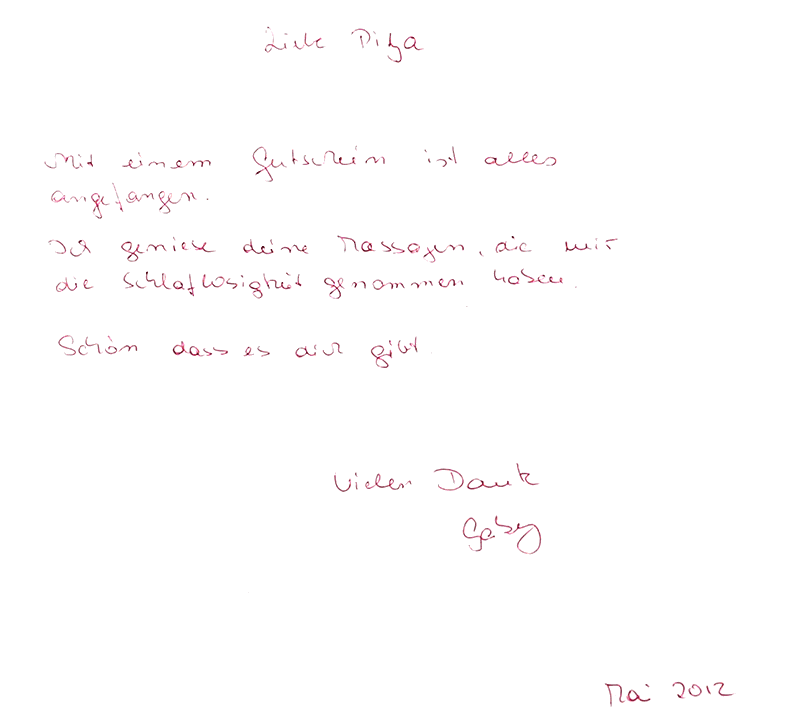 Liebe Pitza
Mit einem Gutschein ist alles
angefangen.
Ich geniese deine Massagen, die mir
die Schlaflosigkeit genommen haben.
Schön dass es dich gibt
Vielen Dank
Gaby
Mai 2012